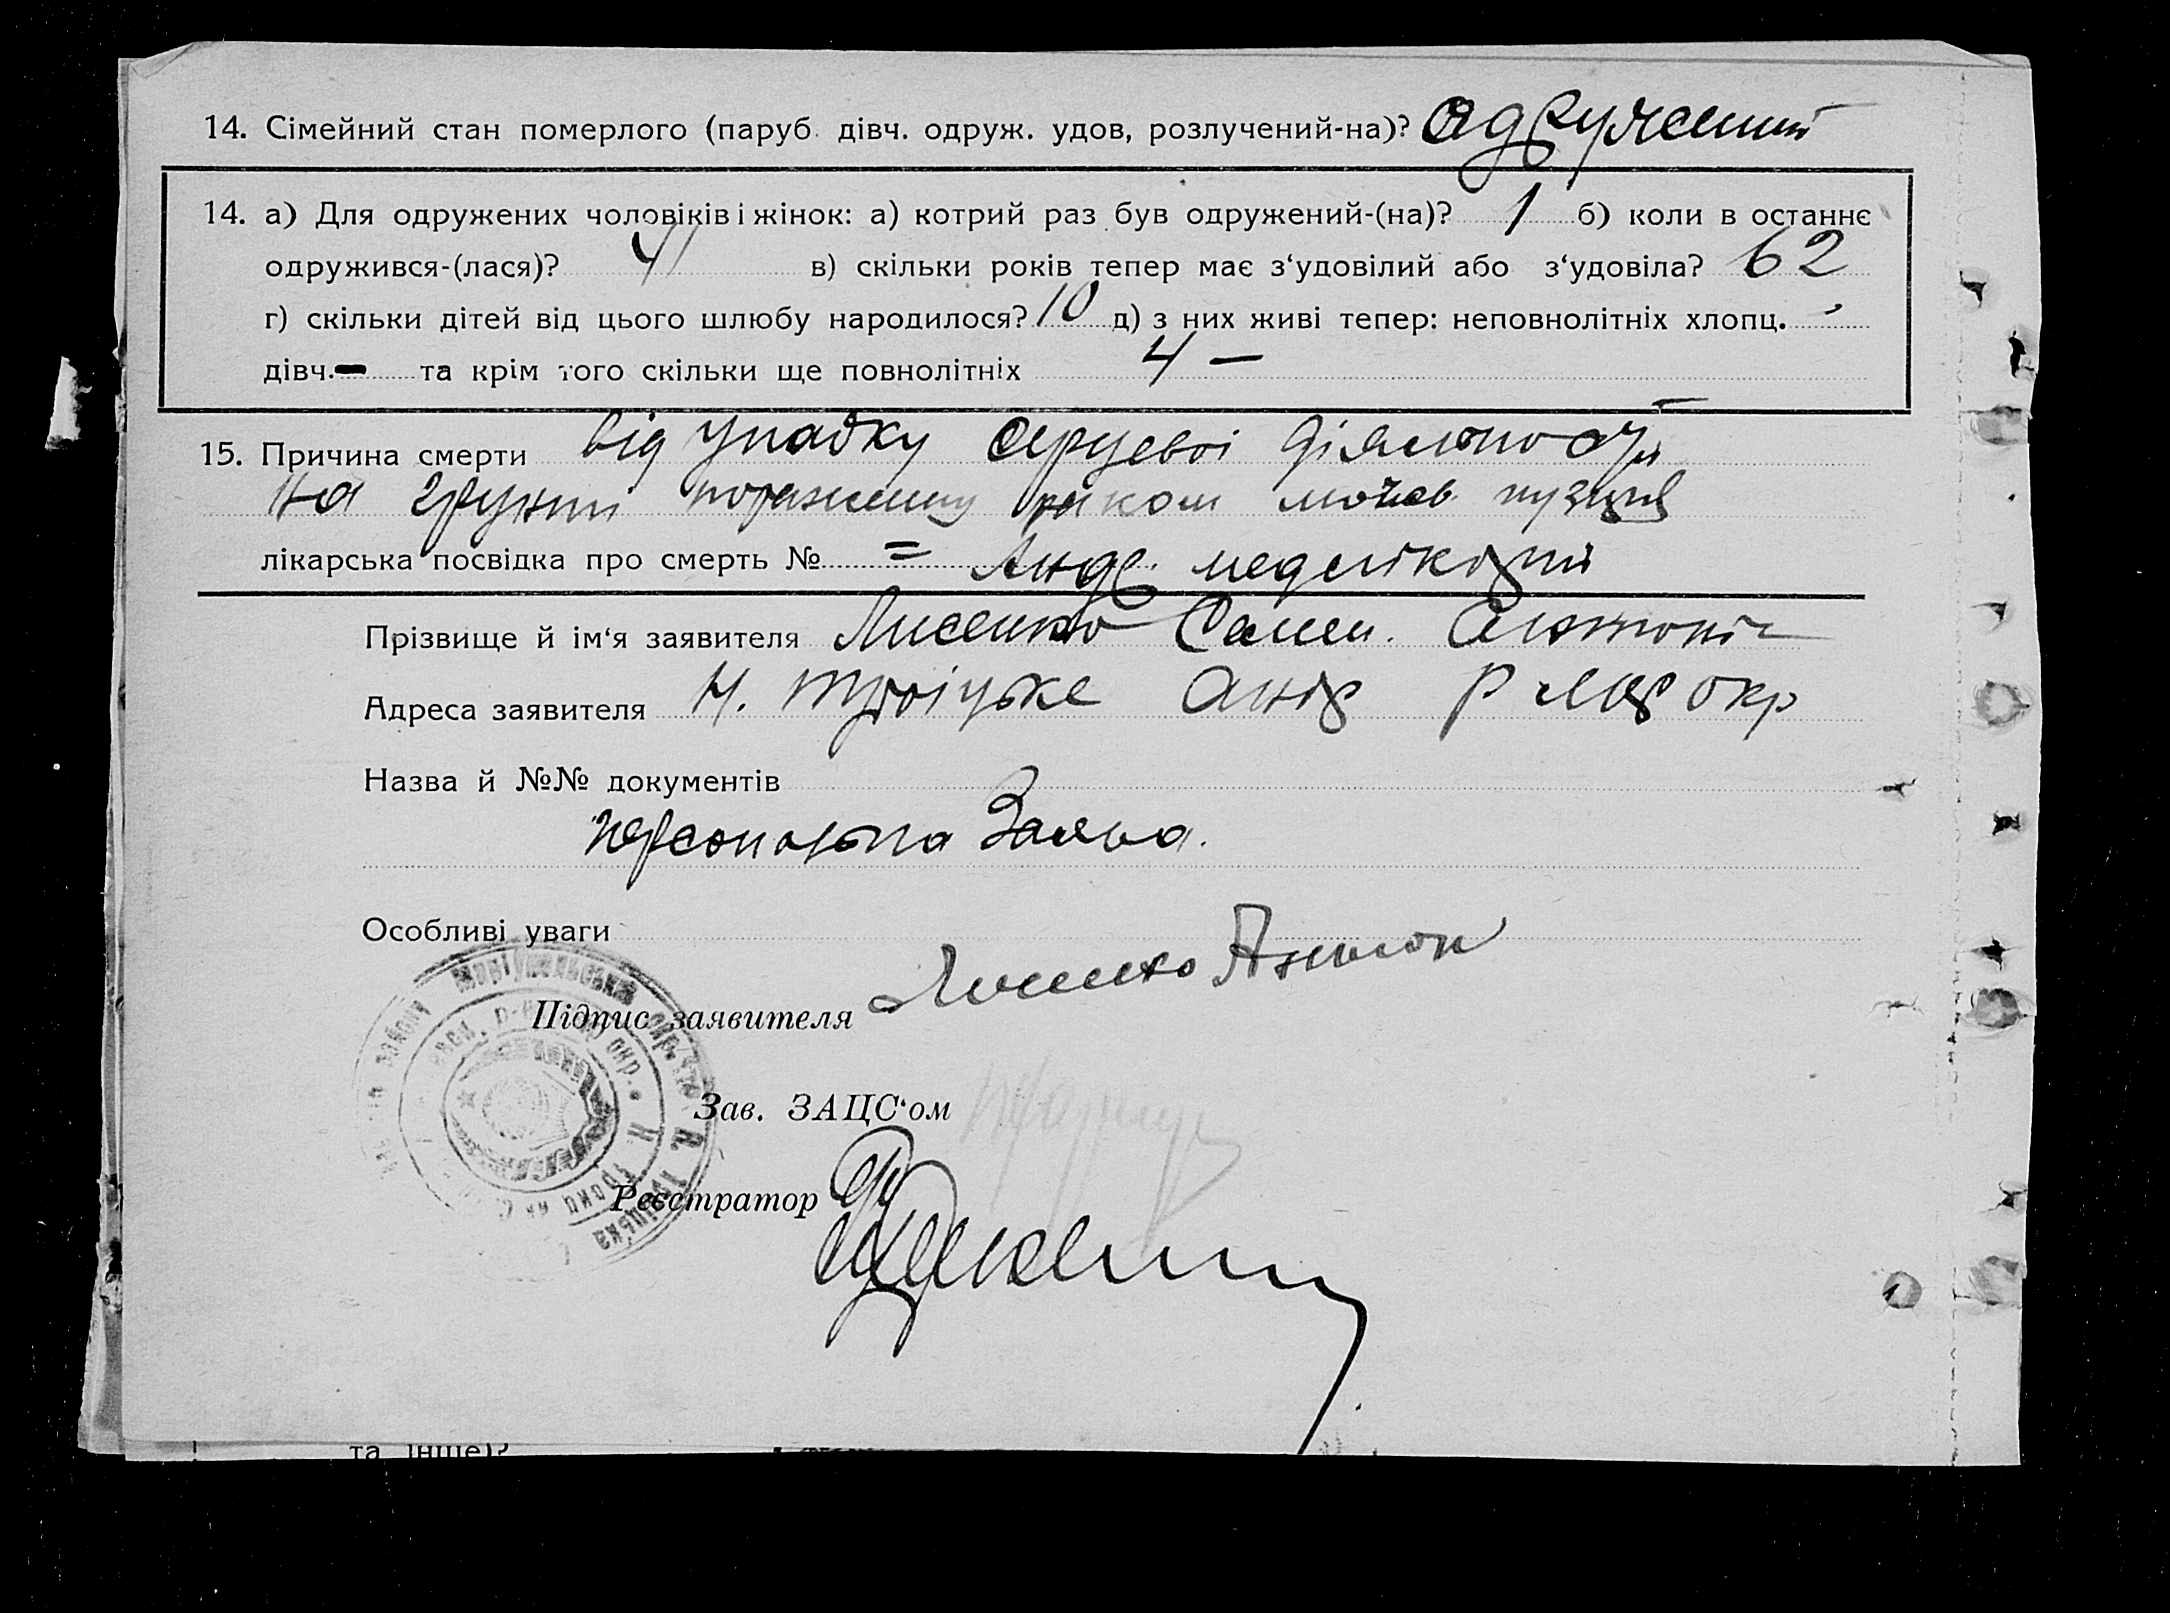 14. Сімейний стан померлого (паруб. дівч. одруж. удов, розлучений-на)? одружений
14. а) Для одружених чоловіків і жінок: а) котрий раз був одружений-(на)? 1 б) коли в останнє
одружився-(лася)? 41 в) скільки років тепер має з‘удовілий або з‘удовіла? 62
г) скільки дітей від цього шлюбу народилося? 10 д) з них живі тепер: неповнолітніх хлопц.
дівч. – та крім того скільки ще повнолітніх 4 –
15. Причина смерти від упадку серцевої діяльности
на грунті пораженну раком мочев. пузиря
лікарська посвідка про смерть № =
Прізвище й ім‘я заявителя Лисенко Семен.
Адреса заявителя Н. Троіцьке р окр
Назва й №№ документів
персональна Заява.
Особливі уваги
Підпис заявителя Лисенко Антон
Зав. ЗАЦС‘ом
Реєстратор
Маріупольська
та інше)?